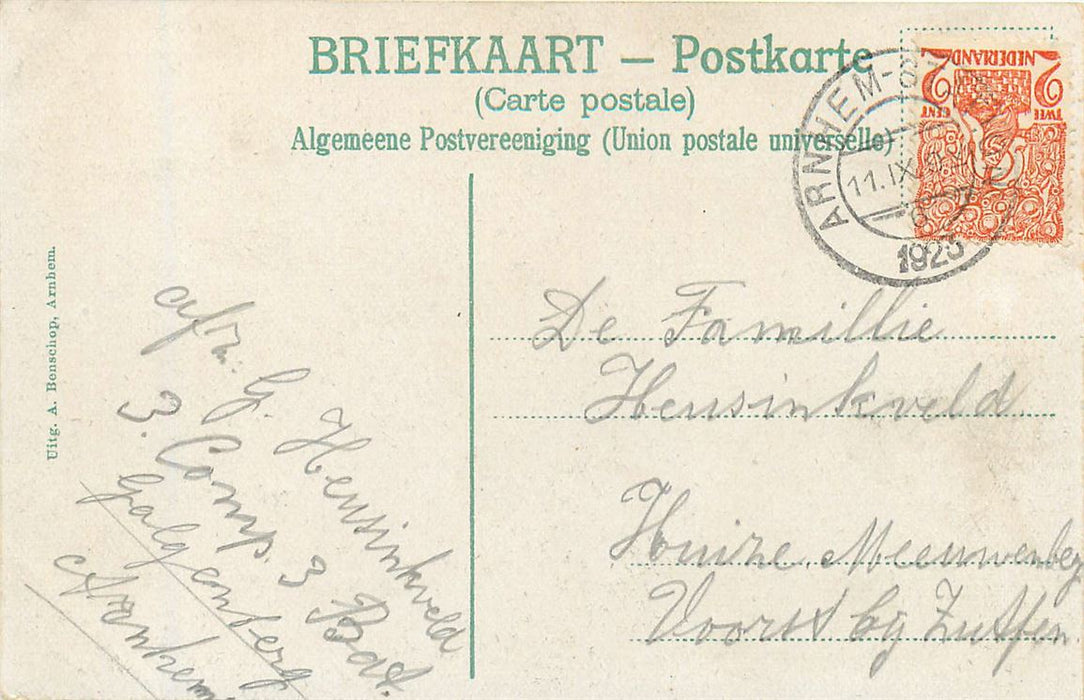 BRIEFKAART — Postkarte
(Carte postale)
Algemeene Postvereeniging (Union postale universelle)
NEDERLAND
2 2
TWEE CENT
ARNHEM-
11.IX
1923
Uitg. A. Benschop, Arnhem.
afz. G. Heusinkveld
3. Comp. 3 Bat.
Galgenberg
Arnhem
De Famillie
Heusinkveld
Huize Meeuwenberg
Voorst bij Zutfen